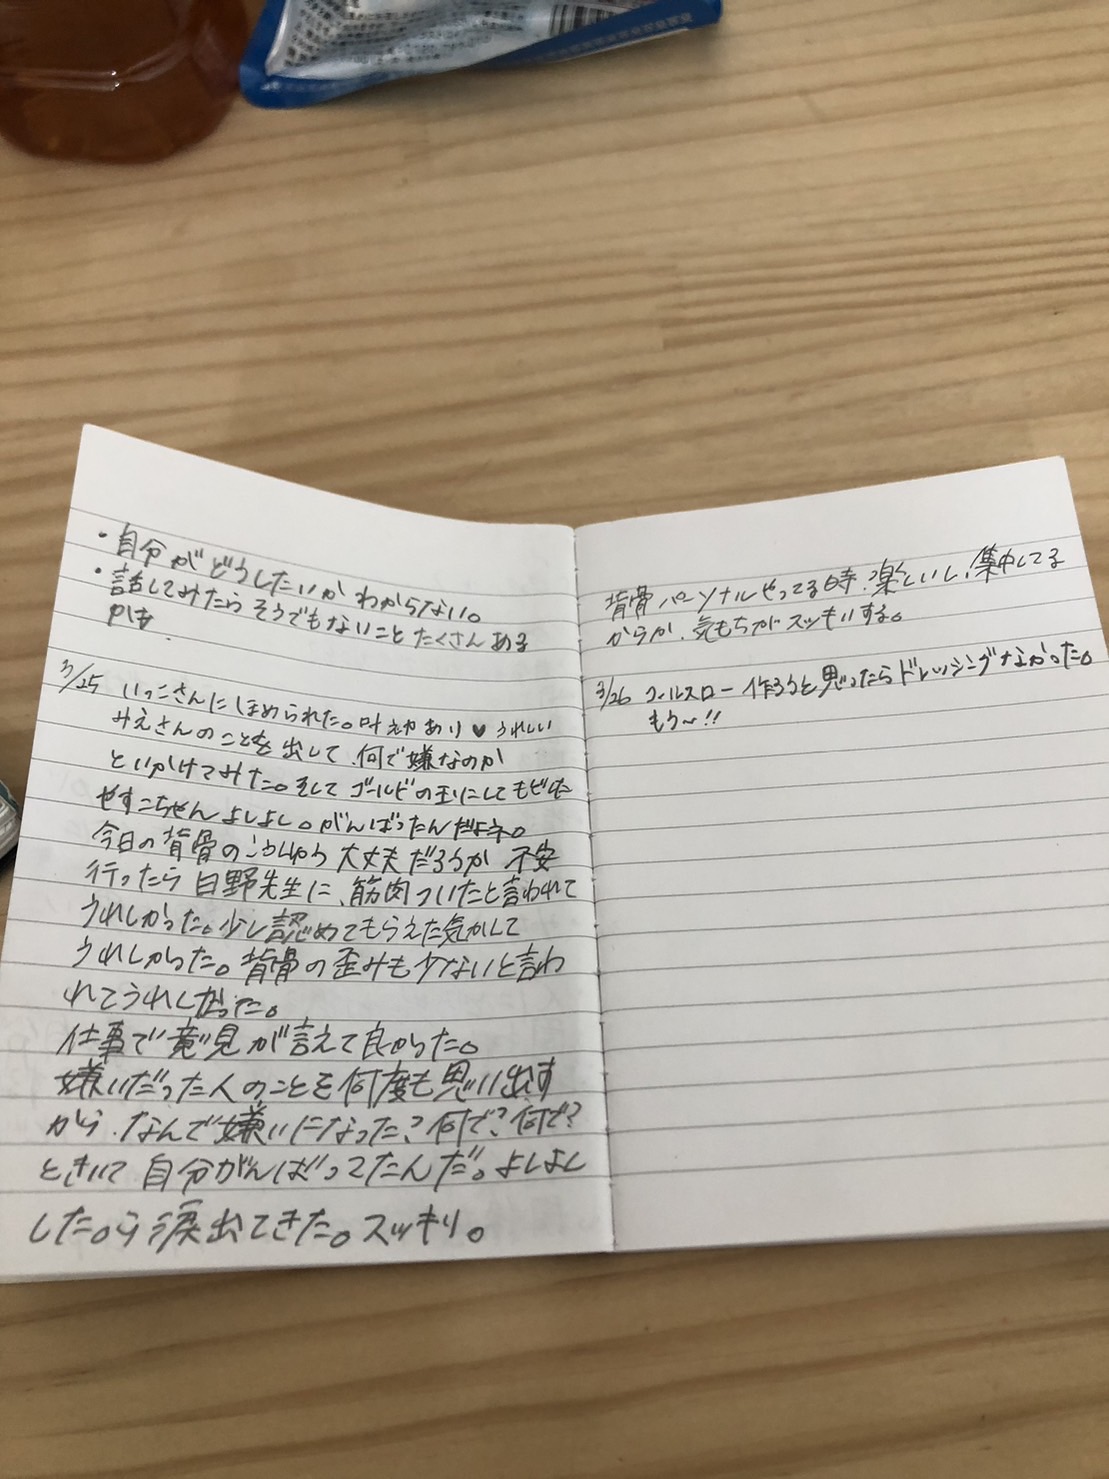 ・自分がどうしたいかわからない。
・話してみたらそうでもないことたくさんある
かも
3/25 いっこさんにほめられた。叶えかあり♥うれしい
みえさんのことを出して、何で嫌なのか
といかけてみた。そしてゴールドの玉にして
やすこちゃんよしよし。がんばったんだよネ。
今日の背骨のこうしゅう大丈夫だろうか 不安
行ったら日野先生に、筋肉ついたと言われて
うれしかった。少し認めてもらえた気がして
うれしかった。背骨の歪みも少ないと言わ
れてうれしかった。
仕事で意見が言えて良かった。
嫌いだった人のことを何度も思い出す
から、なんで嫌いになった?何で?何で?
ときいて自分がんばってたんだ。よしよし
した。ら涙出てきた。スッキリ。
背骨パーソナルやってる時、楽しいし、集中してる
からか、気もちがスッキリする。
3/26 コールスロー作ろうと思ったらドレッシングなかった。
もう〜!!